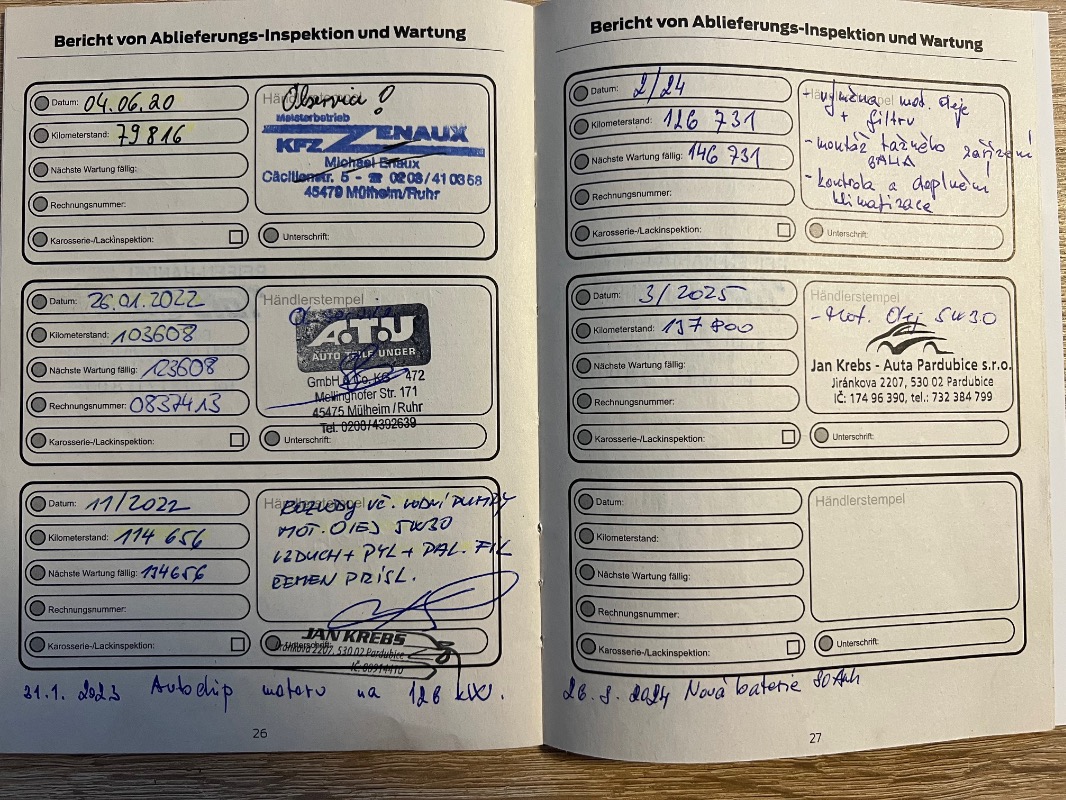 Bericht von Ablieferungs-Inspektion und Wartung
Datum: 04.06.20
Kilometerstand: 79816
Nächste Wartung fällig:
Rechnungsnummer:
Karosserie-/Lackinspektion:
Händlerstempel
Meisterbetrieb
KFZ ZENAUX
Michael Enaux
Cäcilienstr. 5 - ☎ 0208/410358
45479 Mülheim/Ruhr
Unterschrift:
Datum: 26.01.2022
Kilometerstand: 103608
Nächste Wartung fällig: 123608
Rechnungsnummer: 0837413
Karosserie-/Lackinspektion:
Händlerstempel
A.T.U
AUTO TEILE UNGER
GmbH & Co. KG 472
Mellinghofer Str. 171
45475 Mülheim/Ruhr
Tel. 0208/4392639
Unterschrift:
Datum: 11/2022
Kilometerstand: 114 656
Nächste Wartung fällig: 134656
Rechnungsnummer:
Karosserie-/Lackinspektion:
Händlerstempel
ROZVODY VČ. VODNÍ PUMPY
MOT. OLEJ 5W30
VZDUCH + PYL + PAL. FIL
ŘEMEN PŘÍSL.
Unterschrift:
JAN KREBS
Jiránkova 2207, 530 02 Pardubice
31.1. 2023 Autochip motoru na 126 kW.
26
Bericht von Ablieferungs-Inspektion und Wartung
Datum: 2/24
Kilometerstand: 126 731
Nächste Wartung fällig: 146 731
Rechnungsnummer:
Karosserie-/Lackinspektion:
- výměna mot. oleje
+ filtru
- montáž tažného zařízení
- kontrola a doplnění
klimatizace
Unterschrift:
Datum: 3/2025
Kilometerstand: 137 800
Nächste Wartung fällig:
Rechnungsnummer:
Karosserie-/Lackinspektion:
Händlerstempel
- Mot. Olej 5W30
Jan Krebs - Auta Pardubice s.r.o.
Jiránkova 2207, 530 02 Pardubice
IČ: 174 96 390, tel.: 732 384 799
Unterschrift:
Datum:
Kilometerstand:
Nächste Wartung fällig:
Rechnungsnummer:
Karosserie-/Lackinspektion:
Händlerstempel
Unterschrift:
26. 8. 2024 Nová baterie 80Ah
27